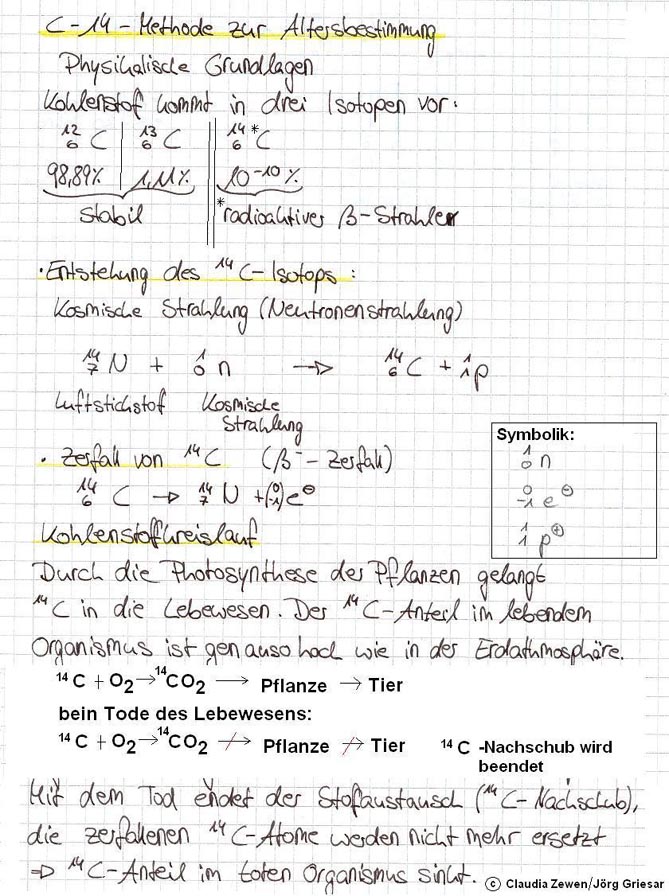 C-14-Methode zur Altersbestimmung
Physikalische Grundlagen
Kohlenstof kommt in drei Isotopen vor:
¹²₆C | ¹³₆C || ¹⁴₆*C
98,89% | 1,11% || 10⁻¹⁰ %
stabil || *radioaktiver β-Strahler
·Entstehung des ¹⁴C-Isotops:
Kosmische Strahlung (Neutronenstrahlung)
¹⁴₇N + ¹₀n → ¹⁴₆C + ¹₁p
Luftstickstof Kosmische
Strahlung
· Zerfall von ¹⁴C (β⁻-Zerfall)
¹⁴₆C → ¹⁴₇N + (⁰₋₁)e⊖
Symbolik:
¹₀n
⁰₋₁e⊖
¹₁p⊕
Kohlenstoffkreislauf
Durch die Photosynthese der Pflanzen gelangt
¹⁴C in die Lebewesen. Der ¹⁴C-Anteil im lebendem
Organismus ist genauso hoch wie in der Erdathmosphäre.
¹⁴C + O₂ → ¹⁴CO₂ → Pflanze → Tier
bein Tode des Lebewesens:
¹⁴C + O₂ → ¹⁴CO₂ ↛ Pflanze ↛ Tier ¹⁴C -Nachschub wird
beendet
Mit dem Tod endet der Stofaustausch (¹⁴C-Nachschub),
die zerfallenen ¹⁴C-Atome werden nicht mehr ersetzt
⇒ ¹⁴C-Anteil im toten Organismus sinkt.
© Claudia Zewen/Jörg Griesar